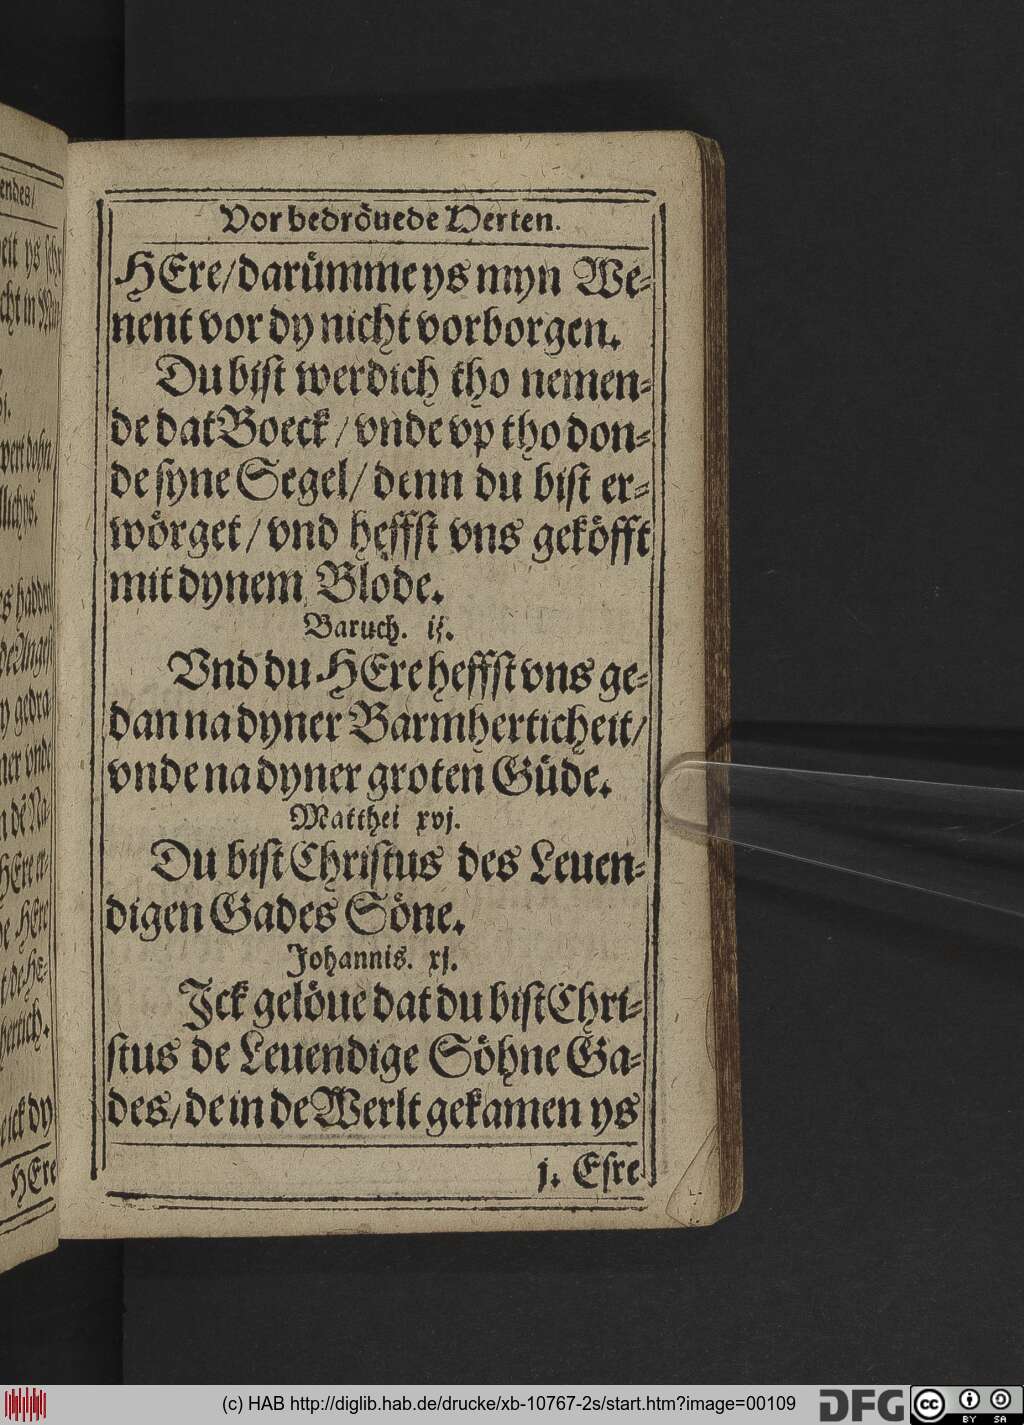 endes/
Vor bedröuede Herten.
HEre/ darümme ys myn We-
nent vor dy nicht vorborgen.
Du bist werdich tho nemen-
de dat Boeck/ vnde vp tho don-
de syne Segel/ denn du bist er-
wörget/ vnd heffst vns geköfft
mit dynem Blode.
Baruch. ij.
Vnd du HEre heffst vns ge-
dan na dyner Barmherticheit/
vnde na dyner groten Güde.
Matthei xvj.
Du bist Christus des Leuen-
digen Gades Söne.
Johannis. xj.
Jck gelöue dat du bist Chri-
stus de Leuendige Söhne Ga-
des/ de in de Werlt gekamen ys
j. Esre
HEre
(c) HAB http://diglib.hab.de/drucke/xb-10767-2s/start.htm?image=00109
DFG
cc BY SA